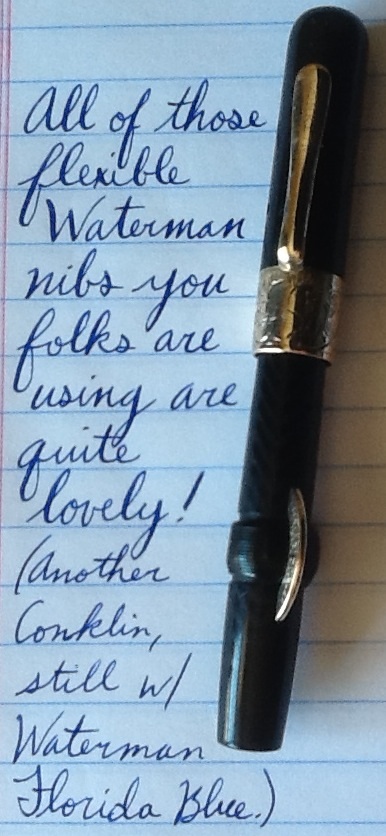 All of those
flexible
Waterman
nibs you
folks are
using are
quite
lovely!
(Another
Conklin,
still w/
Waterman
Florida Blue.)